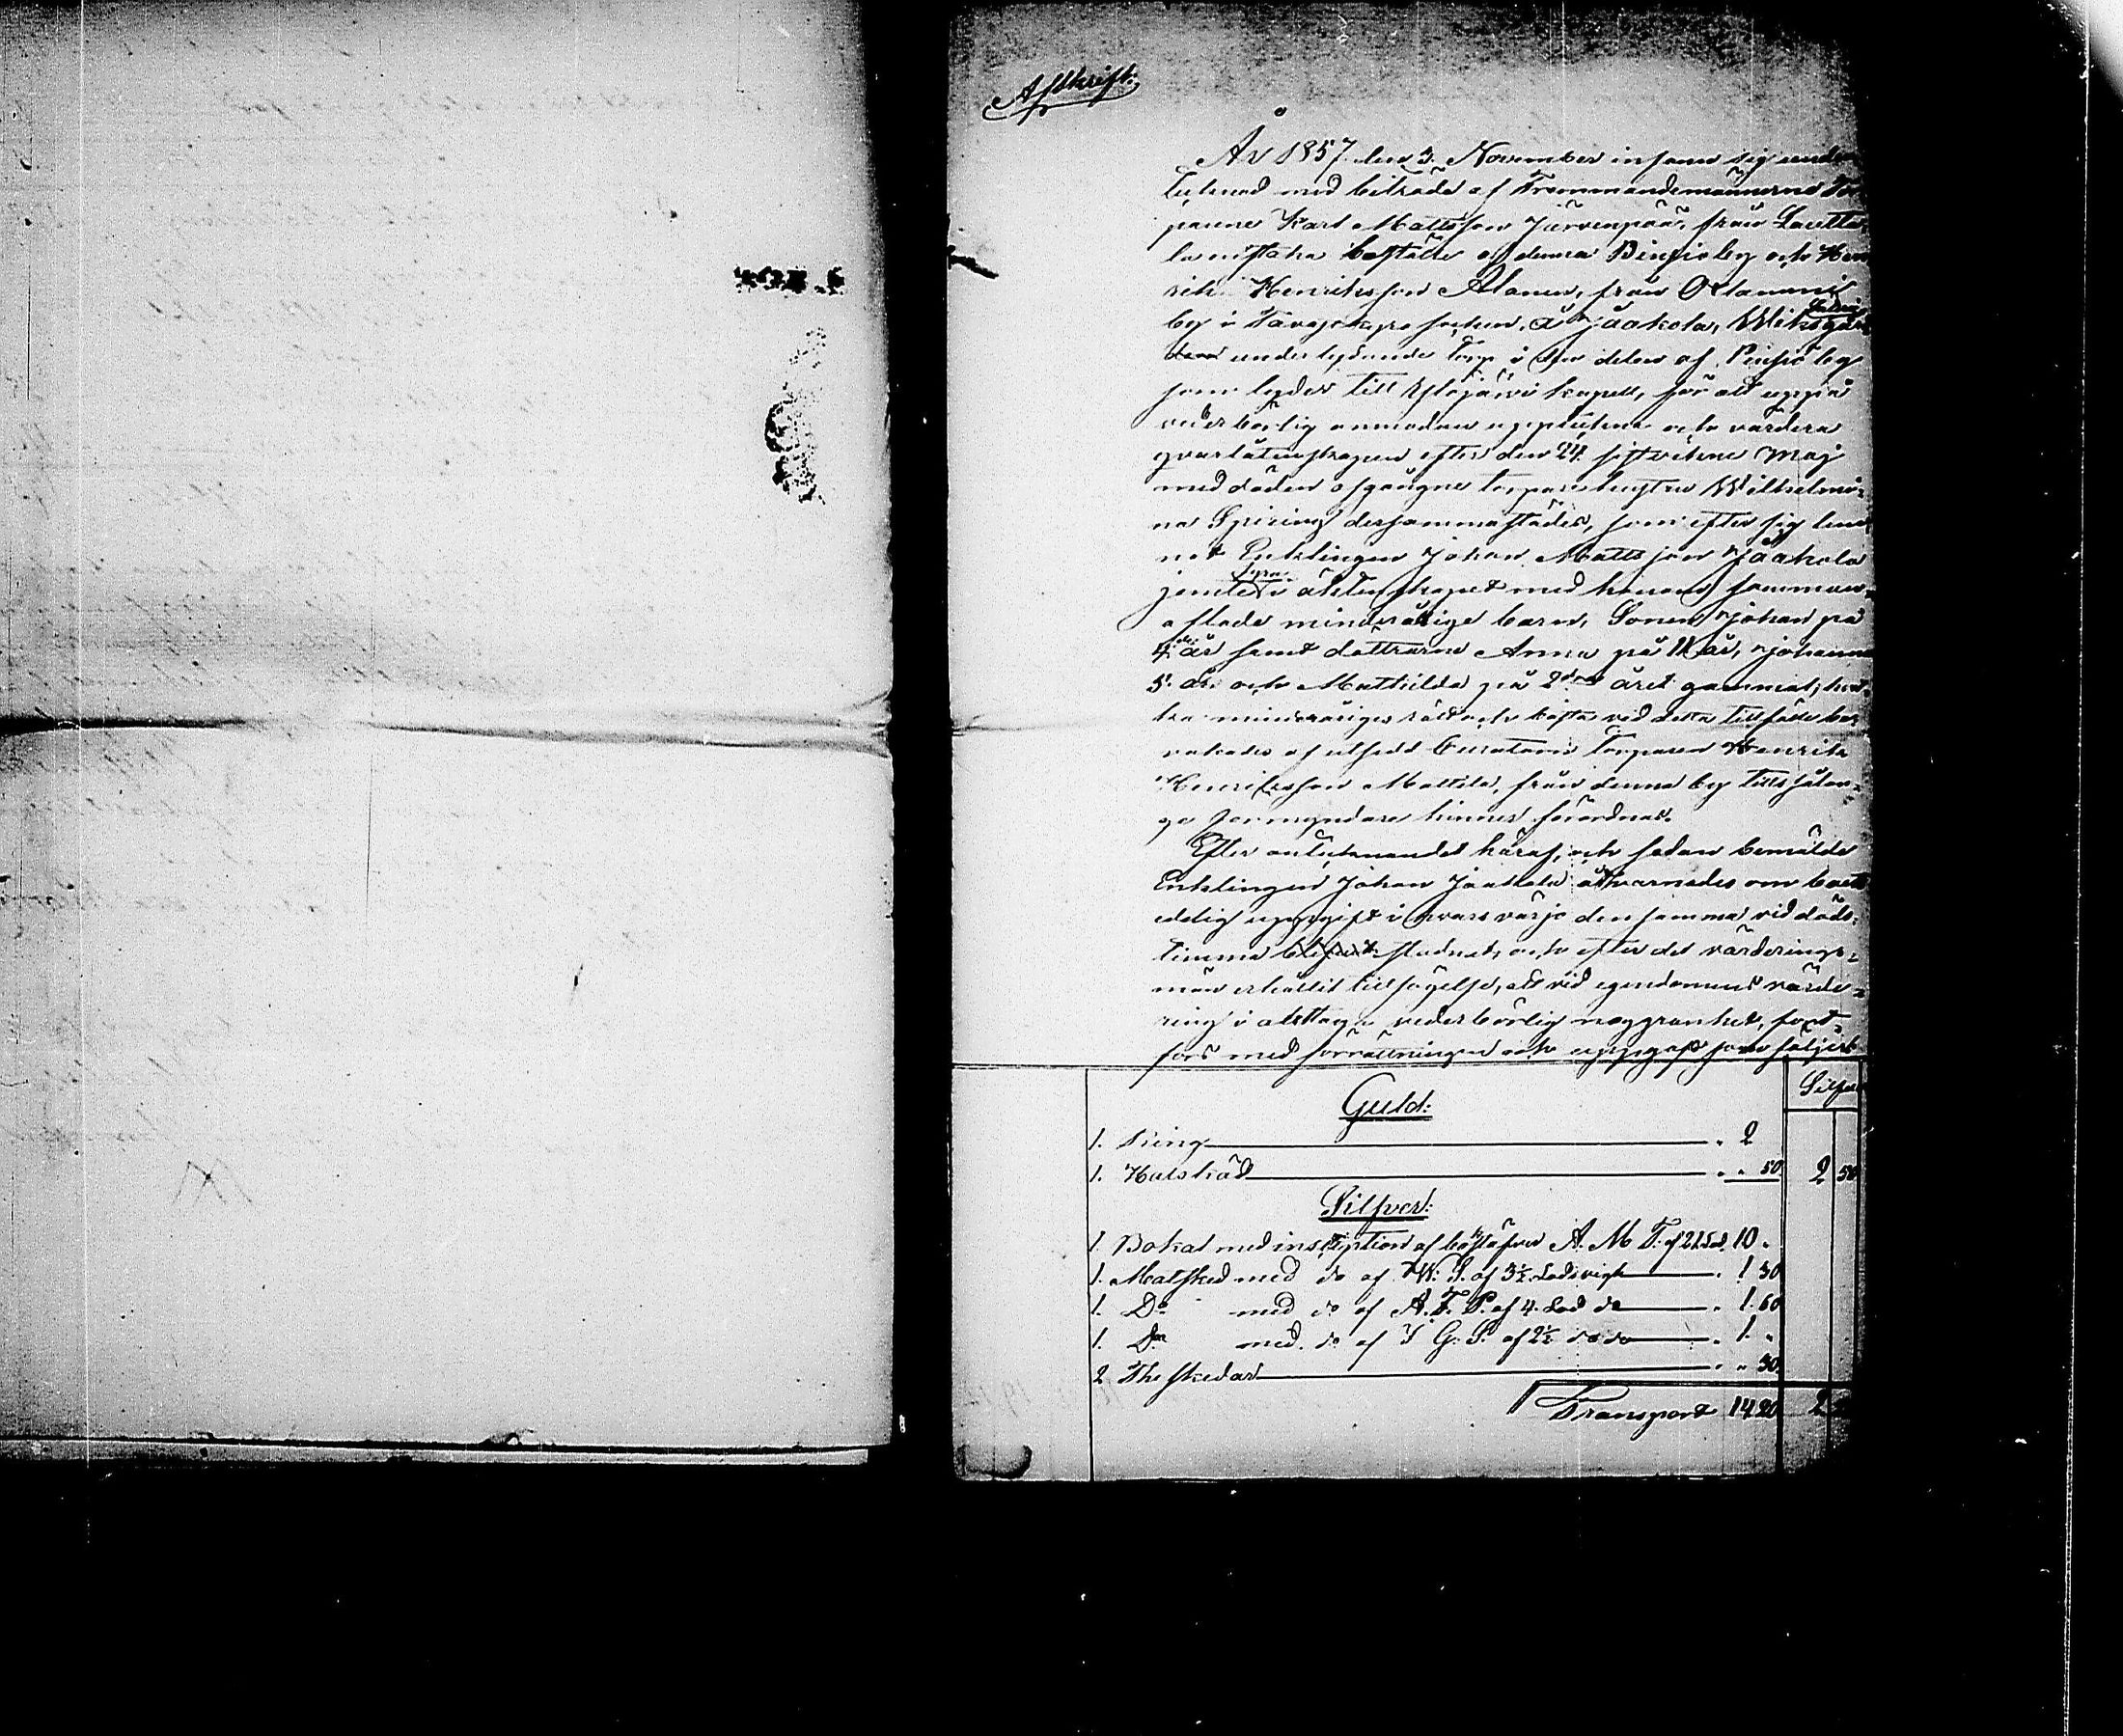 Afskrift.
År 1857 den 3. November infann sig under
tecknad med biträde af Tremmandemännerne Tor
parene Karl Mattsson Järvenpää, från Lautta
la nystaka boställe af denna Pinsiö by och Hen
rik Henriksson Alanen, från Oxlammi
by i Tavastkyro socken, å Jaakola, Wiks gårds
underlydande Torp i den delen af Pinsiö by
som lyder till Ylöjärvi kapell, för att uppå
vederbörlig anmodan uppteckna och värdera
qvarlåtenskapen efter den 24. sistvikne Maj
med döden afgångne torpare hustru Wilhelmi-
na Spiring dersammastädes, som efter sig lem
nat Enklingen Johan Mattsson Jaakola
jemte fyra i äktenskapet med honom samman-
aflade minderårige barn, Sonen Johan på
4:de år samt döttrarne Anna på 11 år, Johanna
5. år och Mathilda på 2:dra året gammal; hvil
ka minderåriges rätt och bästa vid detta tillfälle be
vakades af utsedd Curatorn Torparen Henrik
Henriksson Mattila, från denna by tills laga-
ge förmyndare hinner förordnas.
Efter antecknandet häraf, och sedan bemälde
Enklingen Johan Jaakola åtvarnades om boets
edelig uppgift i hvars värjo densamma vid döds-
timma stadnat, och efter det värderings-
män erhållit tillsägelse, att vid egendomens värde-
ring i akttaga vederbörlig noggranhet, fort-
fors med förrättningen och uppgafs som följer
Silfver
Guld:
1. Ring " 2
1. Halskäd " " 50 2 50
Silfver:
1. Bokal med inscription af bokstäfver A. M T. af 21 Lod. 10 "
1. Matsked med do af W: S. af 3½ Lods vigt " 1 30
1. Do med do af A. T. P. af 4. Lod do " 1. 60
1. Do med. do af J G. S. af 2½ do do " 1. "
2 Theskedar " " 30
Transport 14 20 2